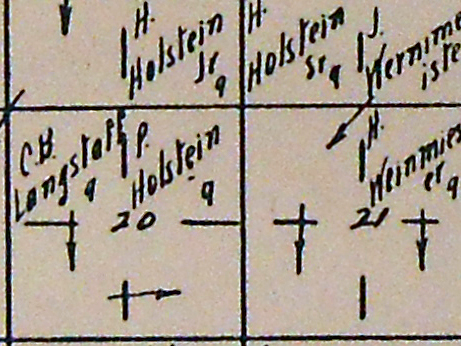 H.
Holstein
Jr
9
H.
Holstein
Sr 9
J.
C.B.
Langstaff
9
P.
Holstein
9
H.
Weinmies
er 9
20
21